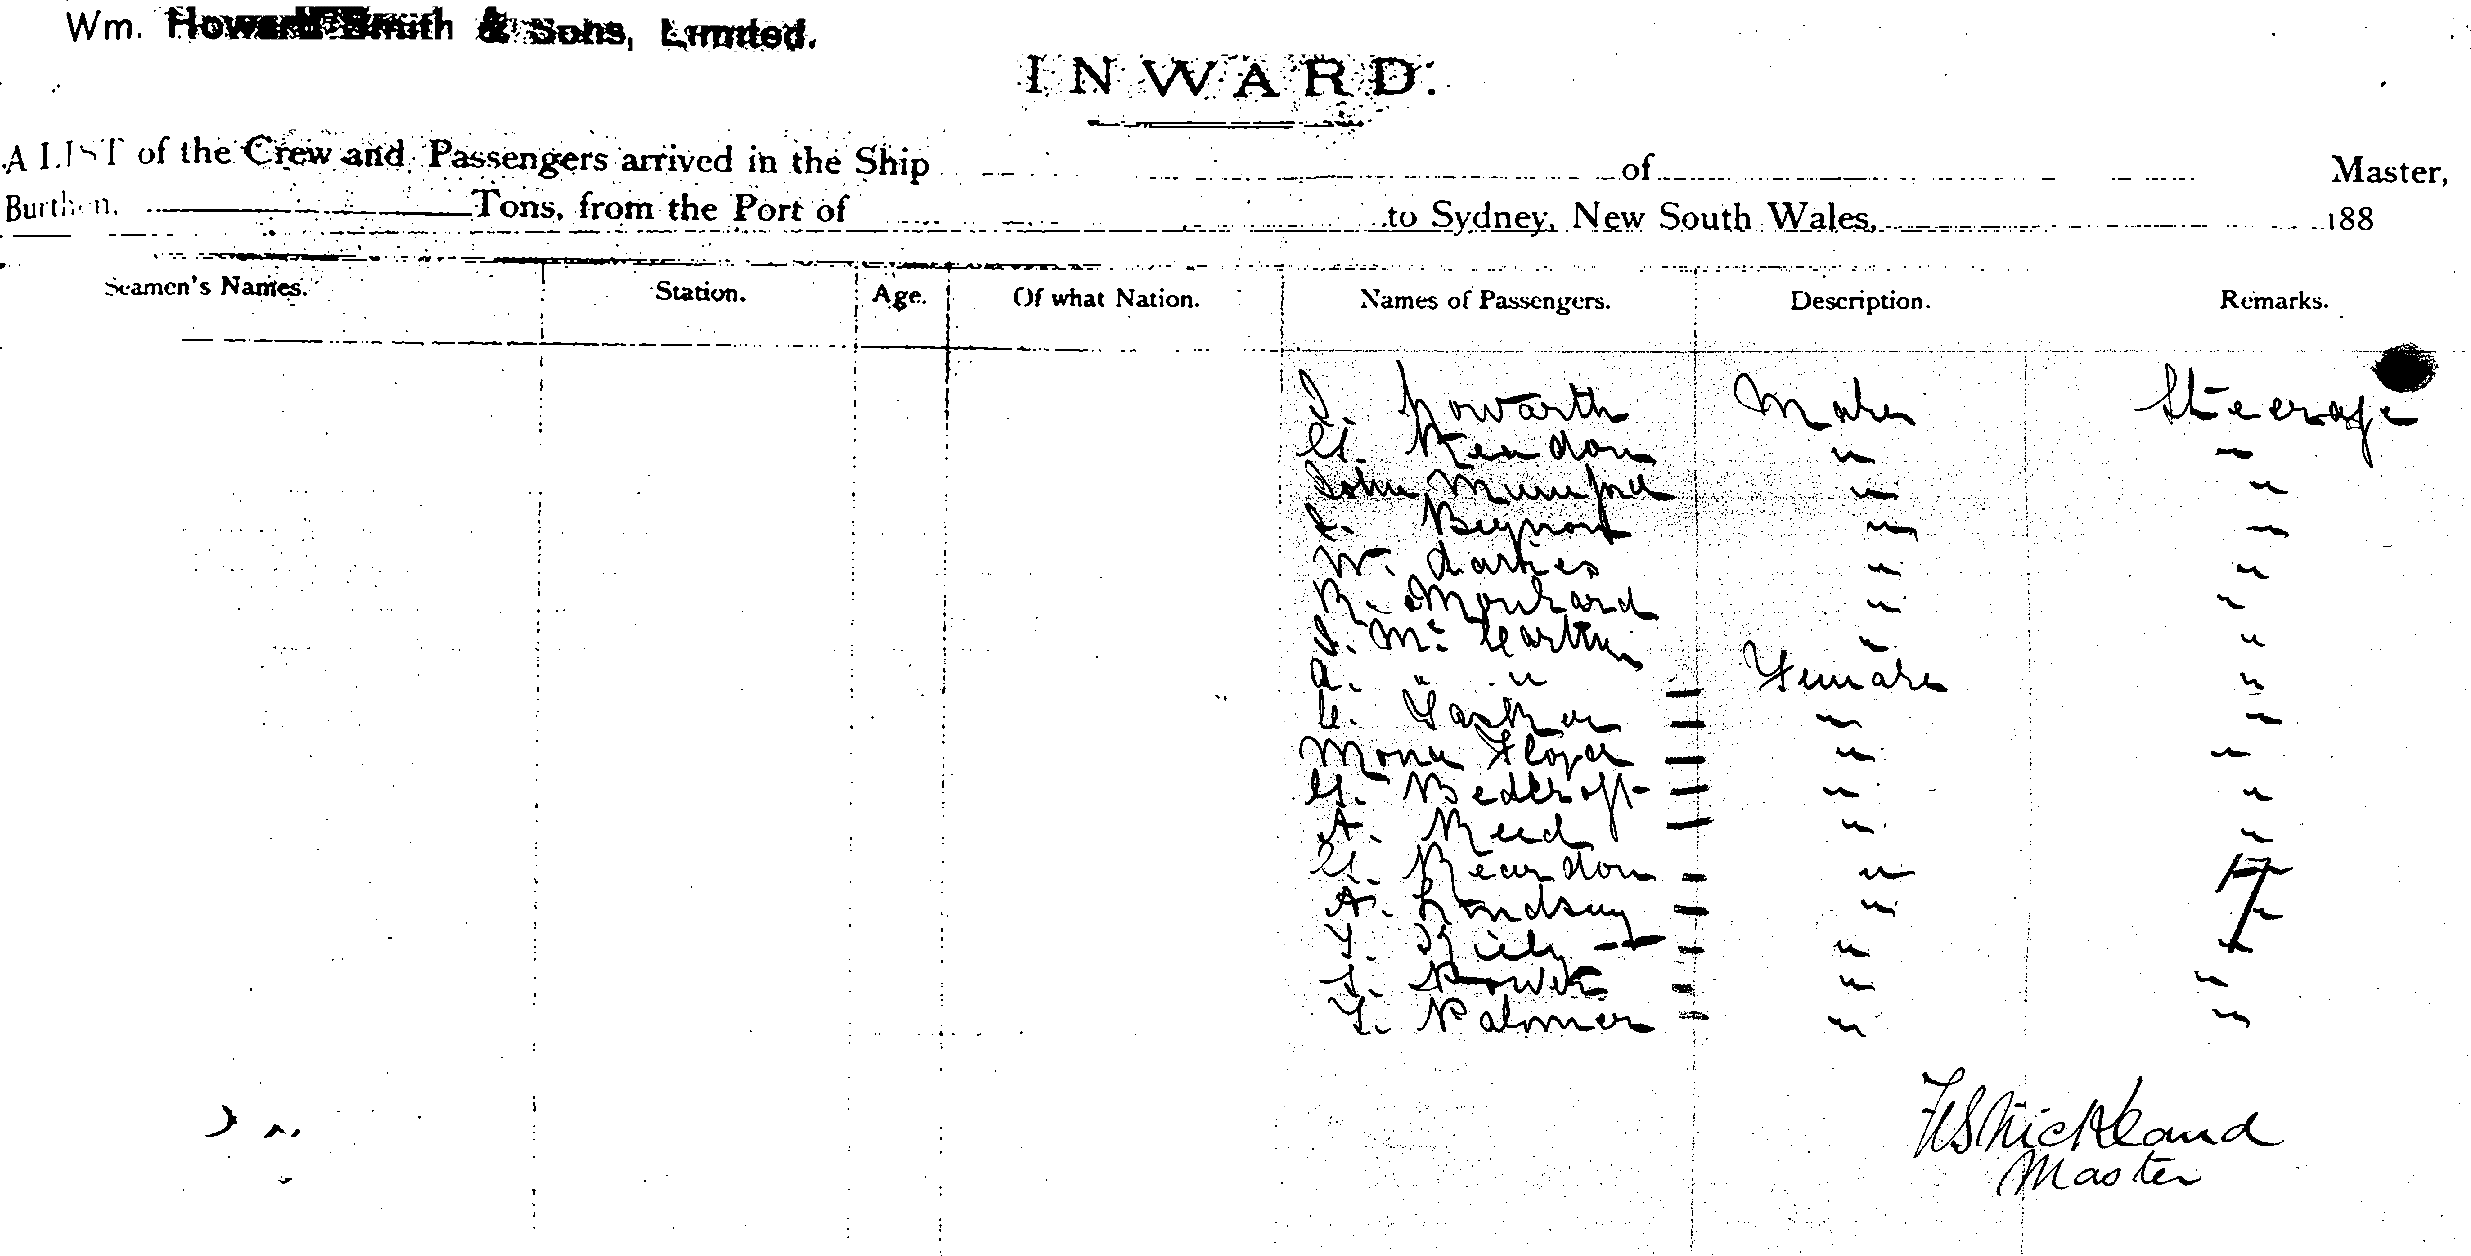 Wm. Howard Smith & Sons, Limited.
INWARD.
A LIST of the Crew and Passengers arrived in the Ship of Master,
Burthen, Tons, from the Port of to Sydney, New South Wales, 188
Seamen's Names. Station. Age. Of what Nation. Names of Passengers. Description. Remarks.
Howarth Male Steerage
G. Reardon " "
John Mumford " "
Beynon " "
W. " "
R. " "
Mc Carthy " "
" " Female "
" "
Mona Floyd " "
G. Bedcroft " "
A. Reed " "
G. Reardon " "
A. Lindsay " "
" "
Power " "
Palmer " "
Master